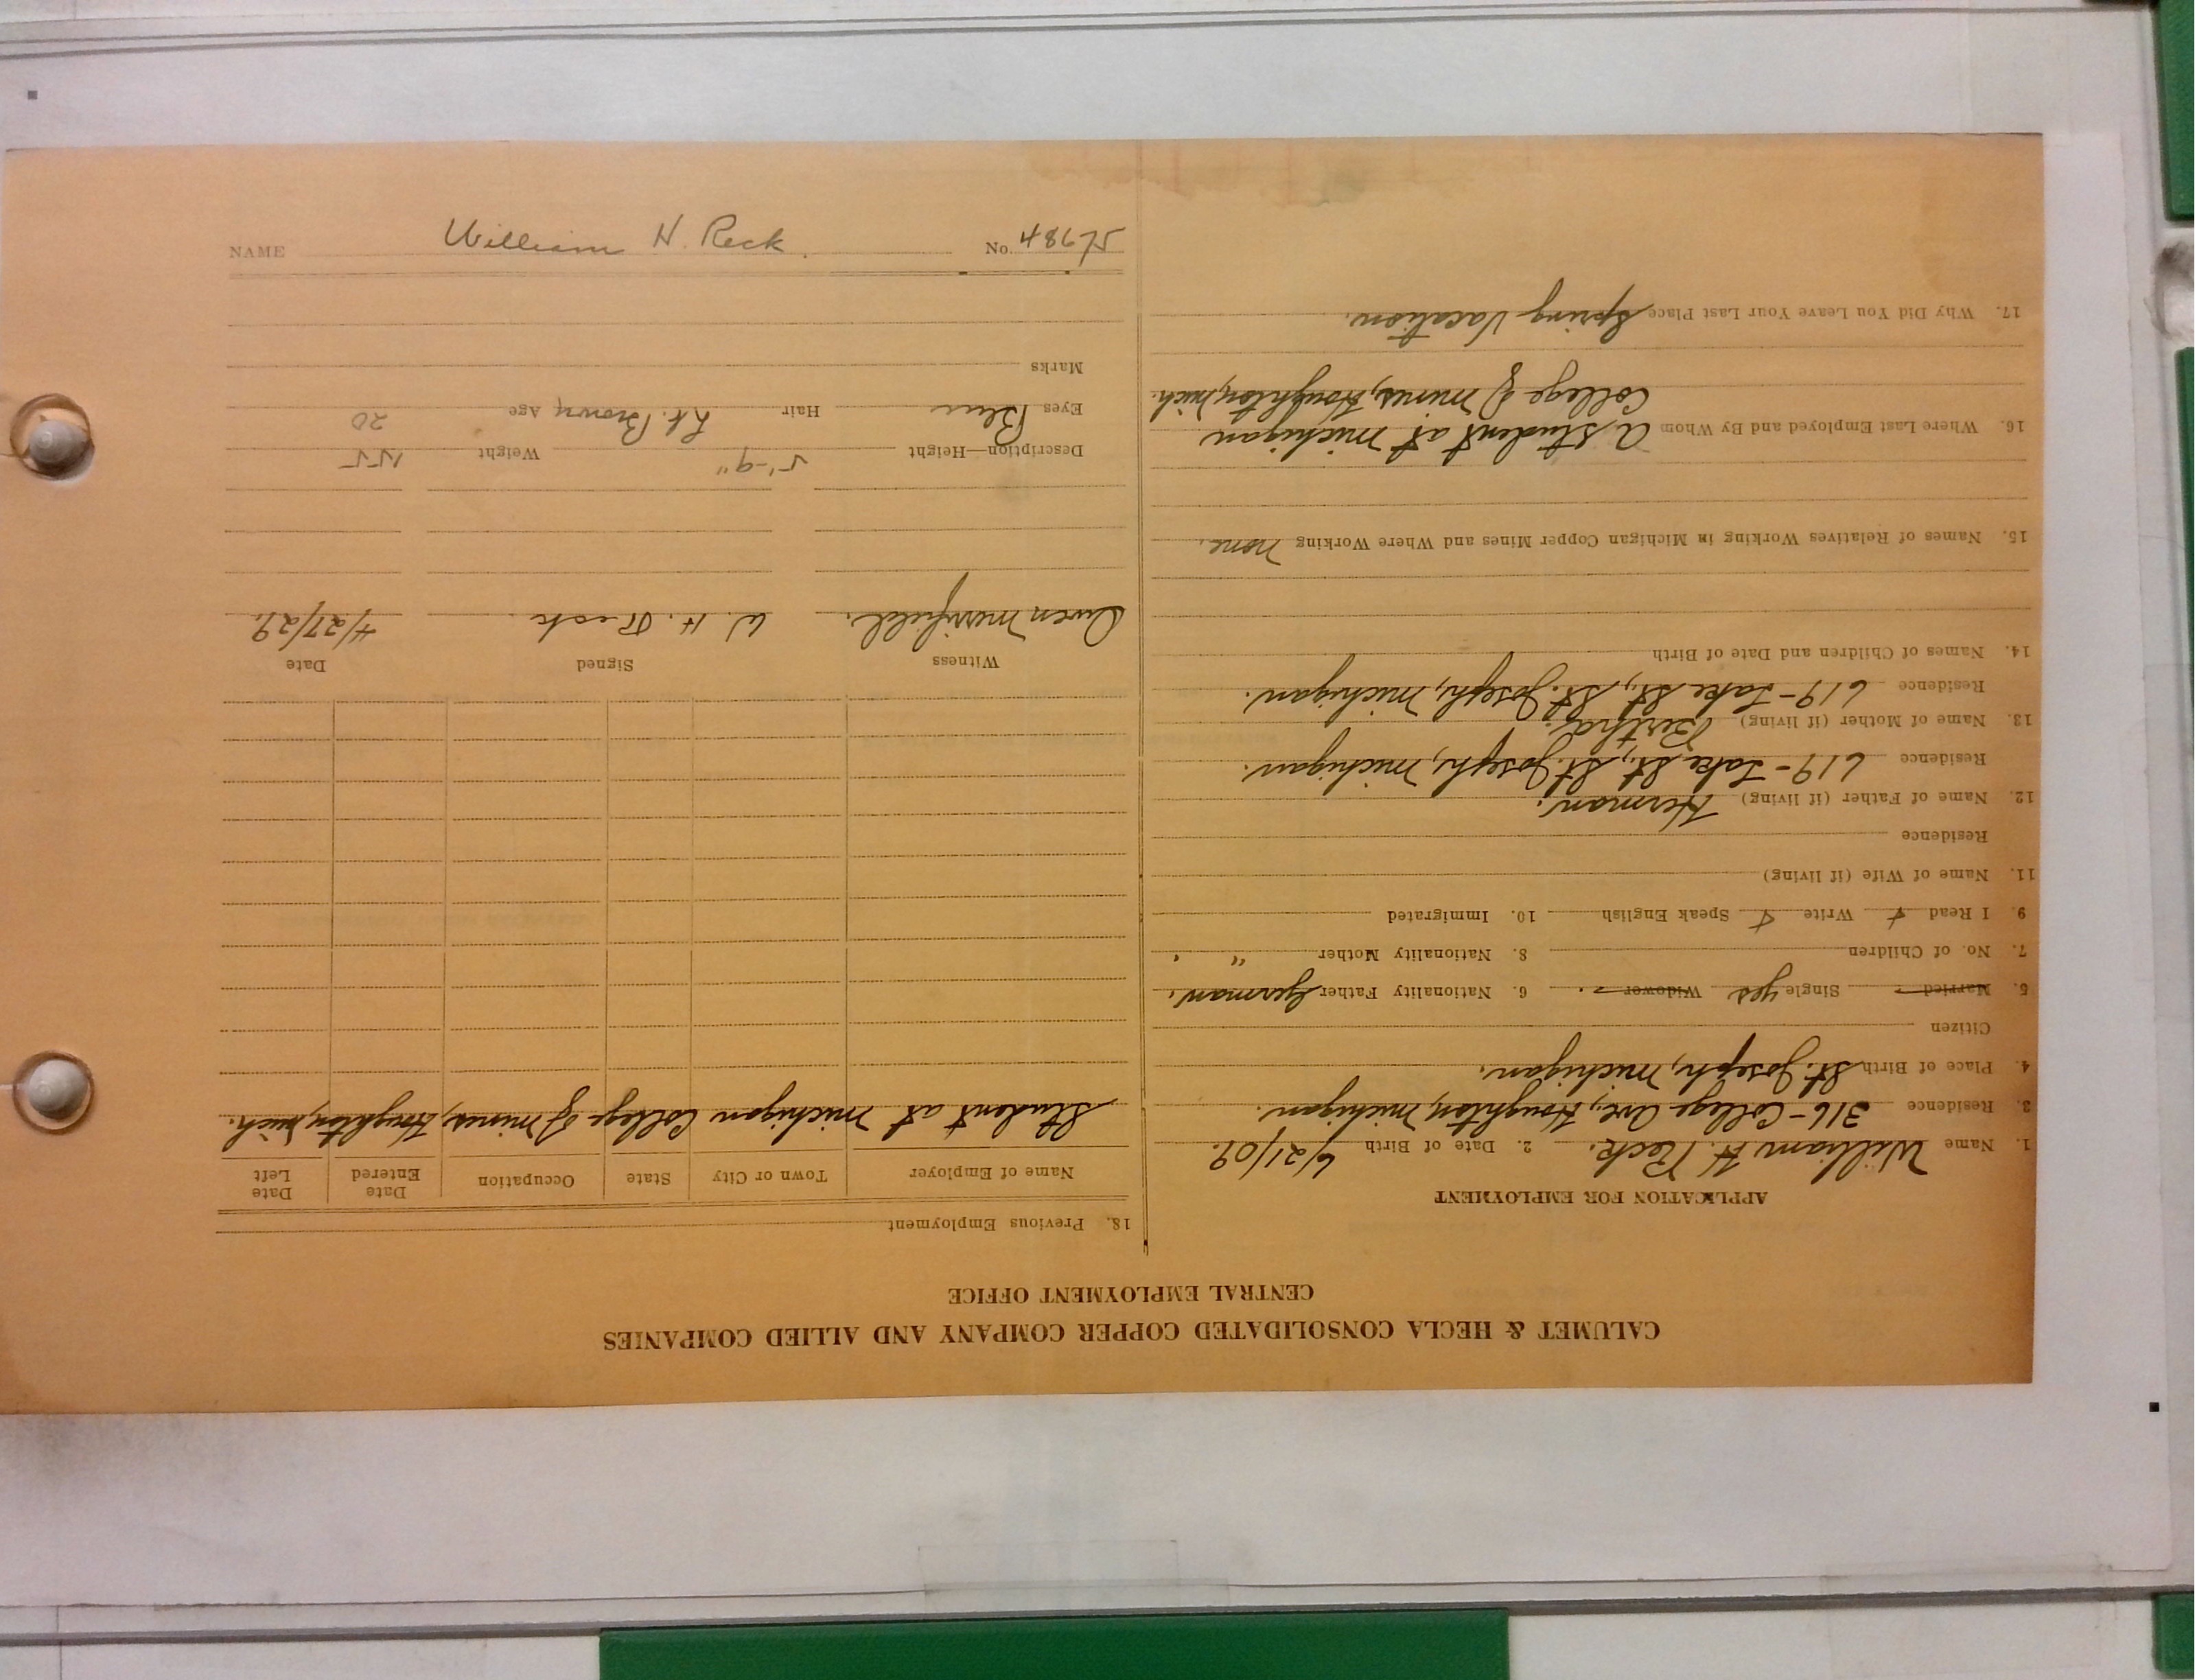 CALUMET & HECLA CONSOLIDATED COPPER COMPANY AND ALLIED COMPANIES
CENTRAL EMPLOYMENT OFFICE
APPLICATION FOR EMPLOYMENT
1. Name William H. Reck. 2. Date of Birth 6/21/09.
3. Residence 316 - College Ave, Houghton, Michigan.
4. Place of Birth St. Joseph, Michigan.
Citizen
5. Married - Single yes Widower - . 6. Nationality Father German.
7. No. of Children 8. Nationality Mother " "
9. I Read + Write + Speak English 10. Immigrated
11. Name of Wife (if living)
Residence
12. Name of Father (if living) Herman.
Residence 619 - Lake St., St. Joseph, Michigan.
13. Name of Mother (if living) Bertha
Residence 619 - Lake St., St. Joseph, Michigan.
14. Names of Children and Date of Birth
15. Names of Relatives Working in Michigan Copper Mines and Where Working none.
16. Where Last Employed and By Whom A student at Michigan
College of Mines, Houghton, Mich.
17. Why Did You Leave Your Last Place Spring Vacation.
18. Previous Employment
Name of Employer Town or City State Occupation Date Entered Date Left
Student at Michigan College of Mines, Houghton, Mich.
Witness Signed Date
Owen Merrifield. W. H. Reck. 4/27/29.
Description—Height 5'-9" Weight 155
Eyes Blue Hair Lt. Brown Age 20
Marks
NAME William H. Reck. No. 48675